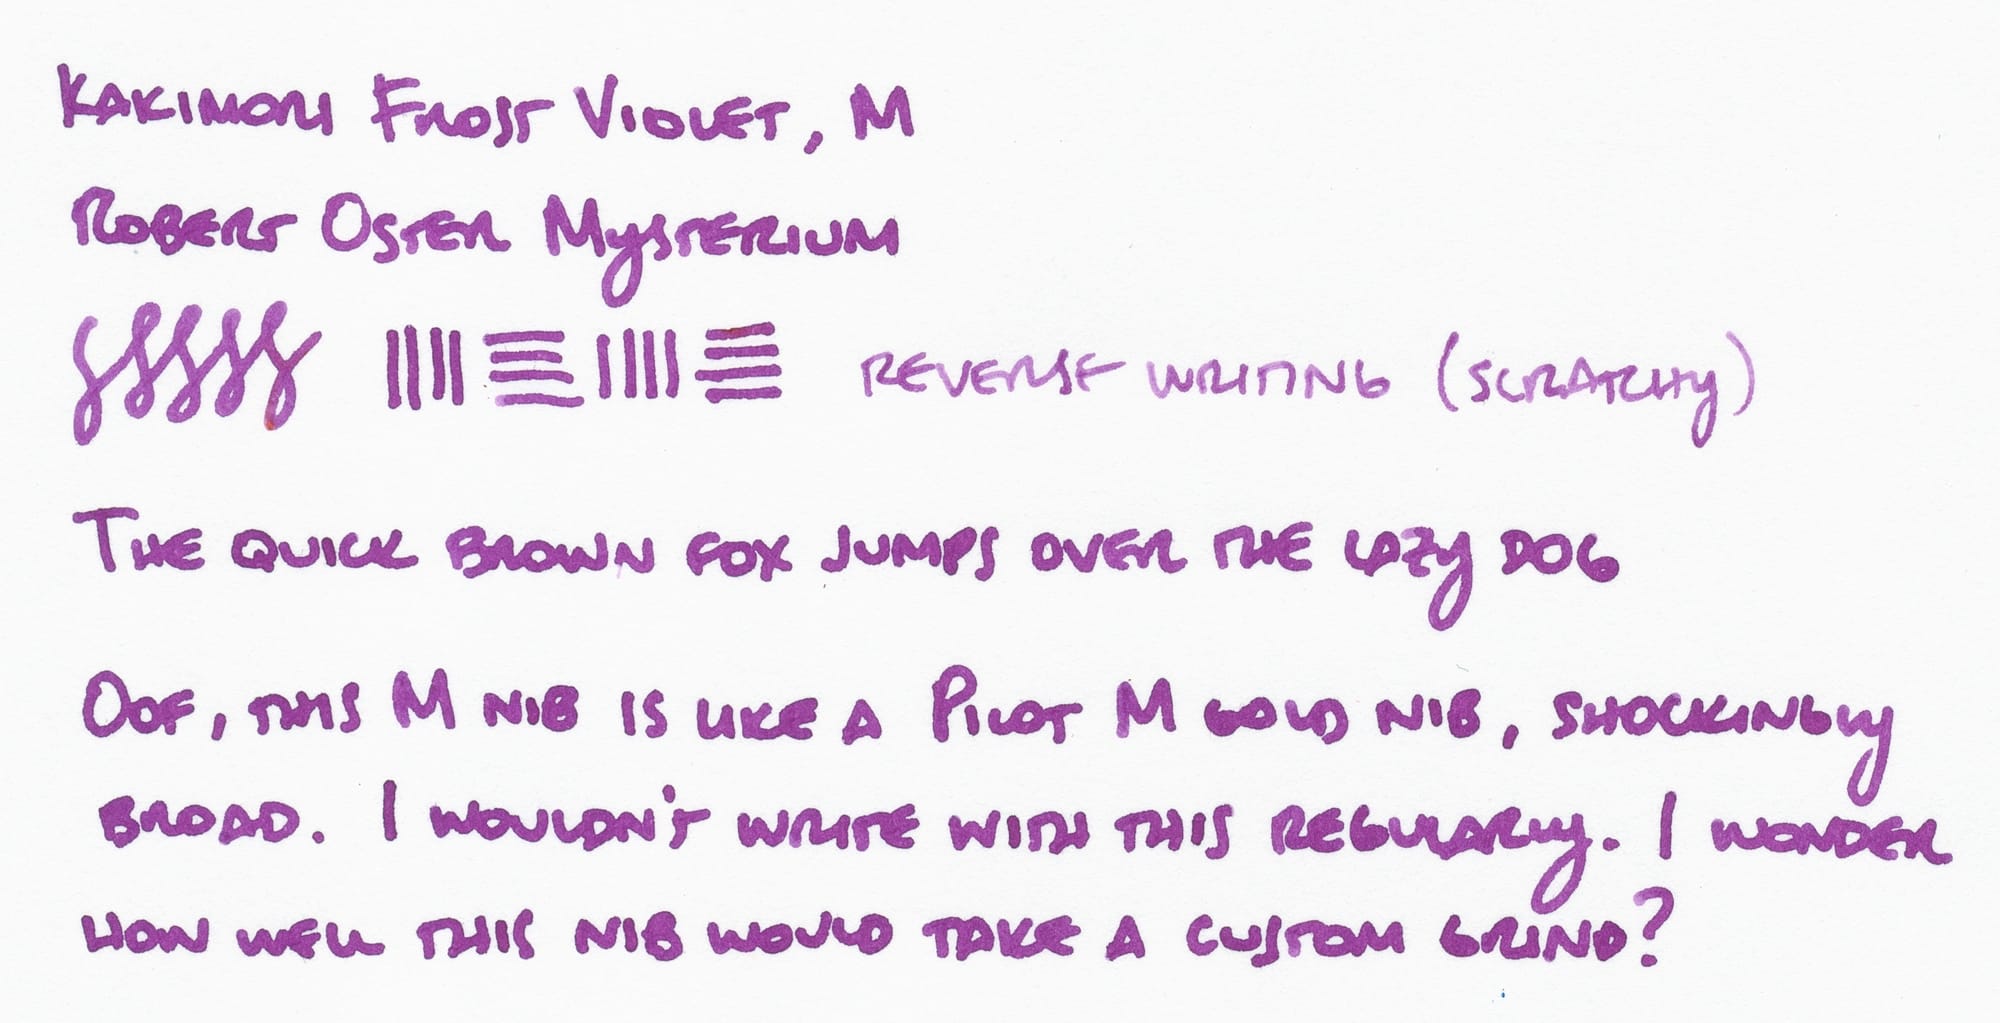 Kakimori Frost Violet, M
Robert Oster Mysterium
reverse writing (scratchy)
The quick brown fox jumps over the lazy dog
Oof, this M nib is like a Pilot M gold nib, shockingly
broad. I wouldn't write with this regularly. I wonder
how well this nib would take a custom grind?